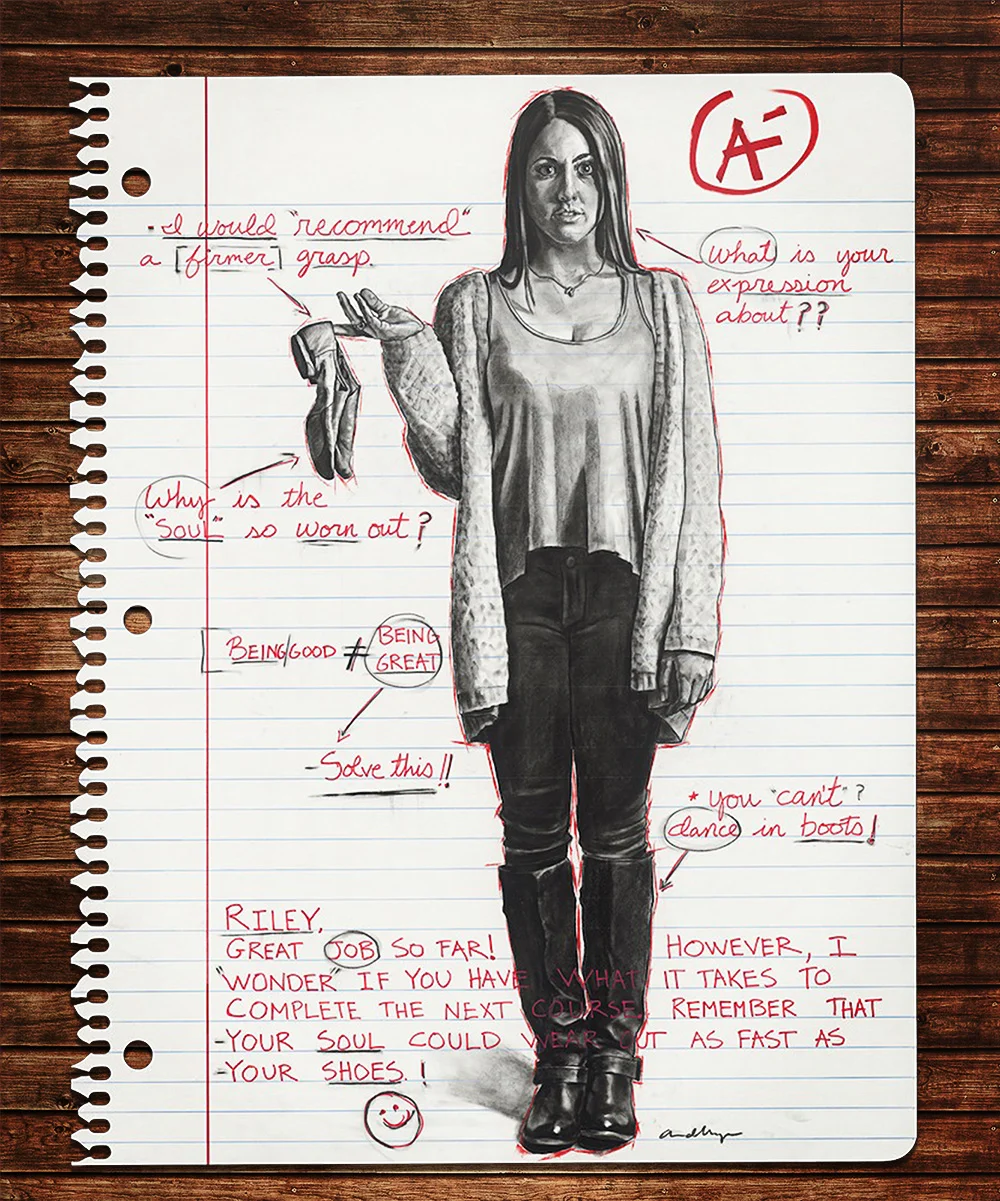 A-
- I would "recommend"
a [firmer] grasp.
What is your
expression
about??
Why is the
"SOUL" so worn out?
BEING/GOOD ≠ BEING
GREAT
- Solve this!!
* you "can't"?
dance in boots!
RILEY,
GREAT JOB SO FAR! HOWEVER, I
"WONDER" IF YOU HAVE WHAT IT TAKES TO
COMPLETE THE NEXT COURSE. REMEMBER THAT
-YOUR SOUL COULD WEAR OUT AS FAST AS
-YOUR SHOES.!